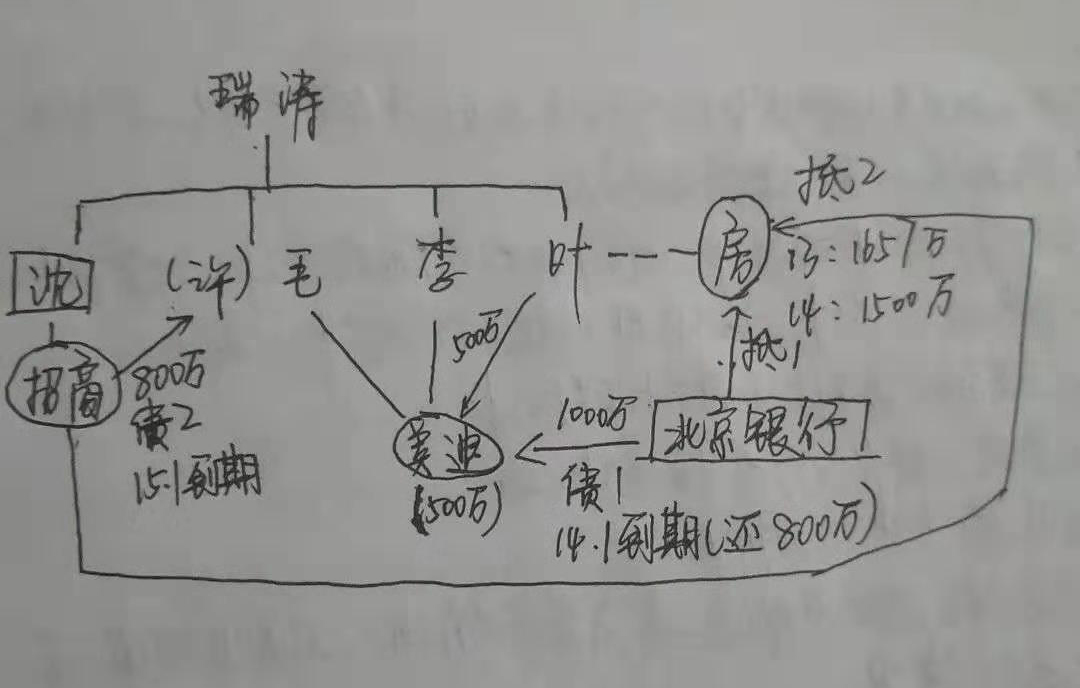 瑞涛
抵2
沈 (许) 毛 李 叶 房
13:1657万
14:1500万
抵1
招商
800万
债2
15.1到期
500万
美迪
(500万)
1000万
北京银行
债1
14.1到期(还800万)